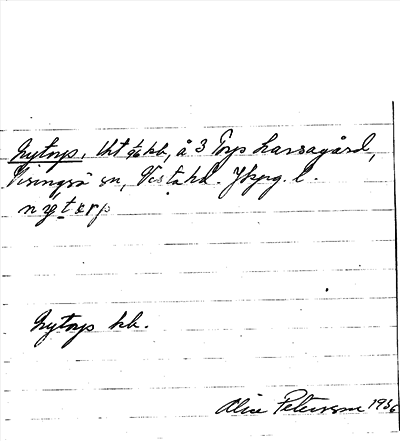 Nytorp, lht 1/16 kb, å 3 Torp Larsagård,
Visingsö sn, Vista hd. Jkpg. l.
nytorp
Nytorp hb.
Alice Petersson 1936